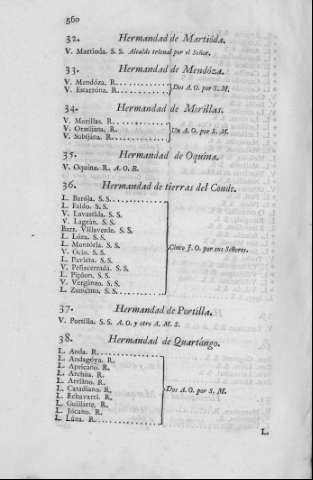 560
32. Hermandad de Martióda.
V. Martioda. S. S. Alcalde trienal por el Señor.
33. Hermandad de Mendóza.
V. Mendóza. R.
V. Estarróna. R. Dos A. O. por S. M.
34. Hermandad de Morillas.
V. Morillas. R.
V. Ormijána. R. Un A. O. por S. M.
V. Subijána. R.
35. Hermandad de Oquina.
V. Oquina. R. A. O. R.
36. Hermandad de tierras del Conde.
L. Baroja. S. S.
L. Faido. S. S.
V. Lavastida. S. S.
V. Lagrán. S. S.
Barr. Villaverde. S. S.
L. Lóza. S. S.
L. Montória. S. S.
V. Ocio. S. S. Cinco J. O. por sus Señores.
L. Pavíéta. S. S.
V. Peñacerrada. S. S.
L. Pipáon. S. S.
V. Vergánzo. S. S.
L. Zumélzu. S. S.
37. Hermandad de Portilla.
V. Portilla. S. S. A. O. y otro A. M. S.
38. Hermandad de Quartángo.
L. Anda. R.
L. Andagóya. R.
L. Apricáno. R.
L. Archúa. R.
L. Arriáno. R.
L. Catadiano. R. Dos A. O. por S. M.
L. Echavarri. R.
L. Guillarte. R.
L. Jócano. R.
L. Lúna. R.
L.